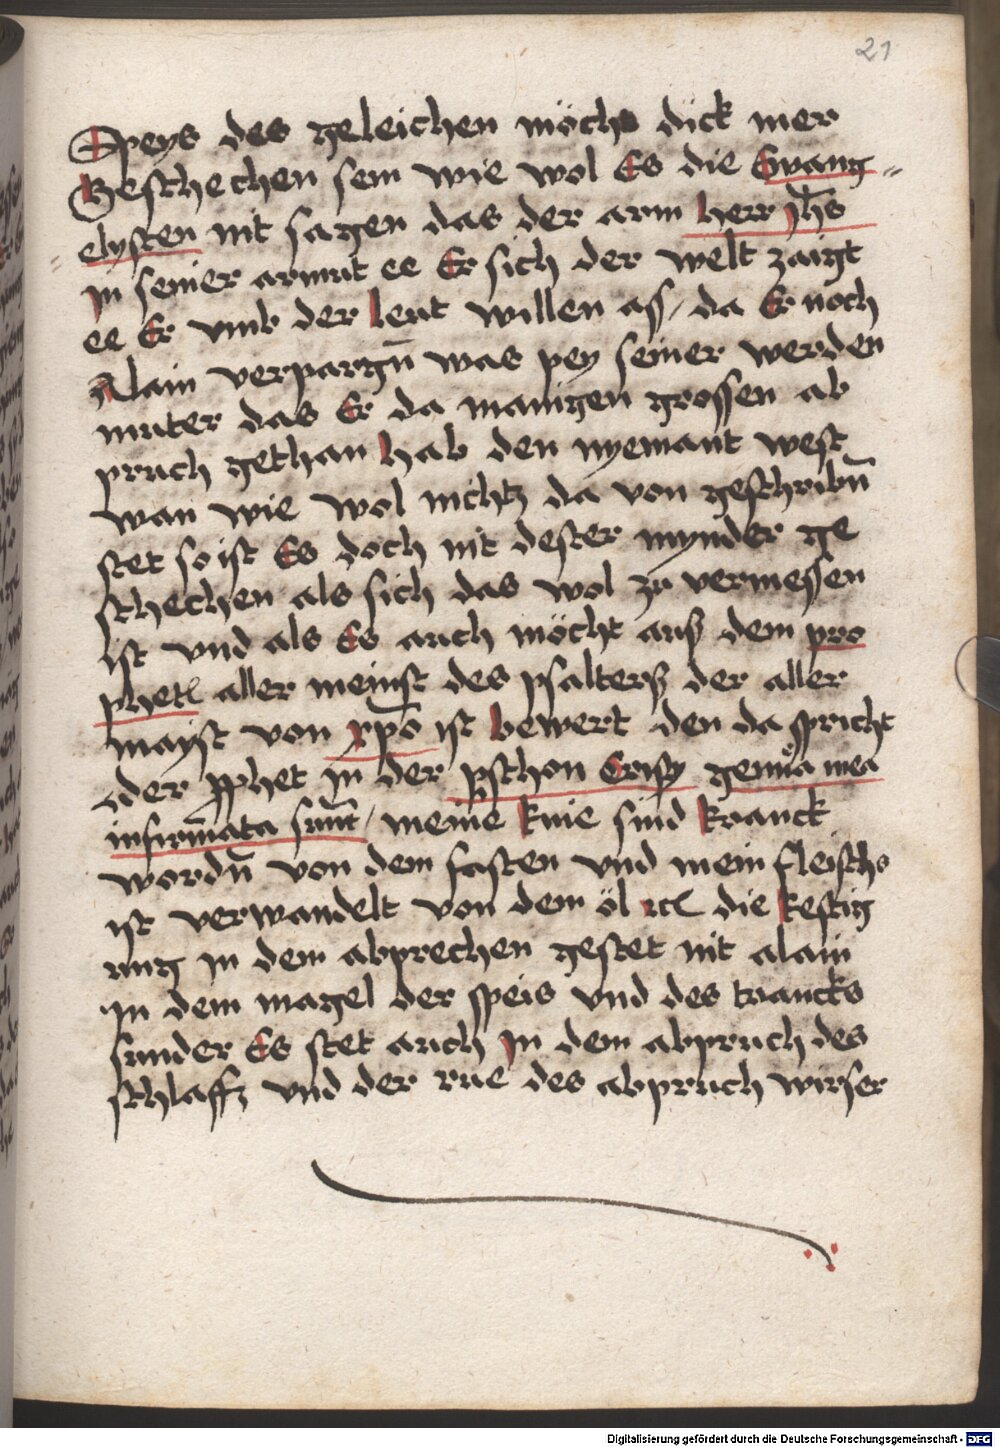 21
Speys des geleichen möcht dick mer
Geschechen sein wie wol Es die Ewang=
=elysten nit sagen das der arm herr Jhs
Jn seiner armut ee Er sich der welt zaigt
ee Er vmb der leut willen ass / da Er noch
Alain verpargñ was pey seiner werden
muter das Er da manigen grossen ab
pruch gethan hab den nyemant west
wan wie wol nichtz da von geschribñ
stet so ist Es doch nit dester mynder ge
schechen als sich das wol zu vermessen
ist vnd als Es auch möcht auß dem pro
phetl aller meinst des psalterß der aller
mayst von xpo ist bewert den da spricht
der pphet Jn der pschon Cristy genua mea
infirmata sunt / meine knie sind kranck
wordñ von dem fasten vnd mein fleisch
ist verwandelt von dem öl rcl die kestig
ung Jn dem abprechen gestet nit alain
Jn dem magel der speis vnd des trancks
sunder Es stet auch Jn dem abpruch des
schlaffz vnd der rue des abpruch wirser
Digitalisierung gefördert durch die Deutsche Forschungsgemeinschaft - DFG